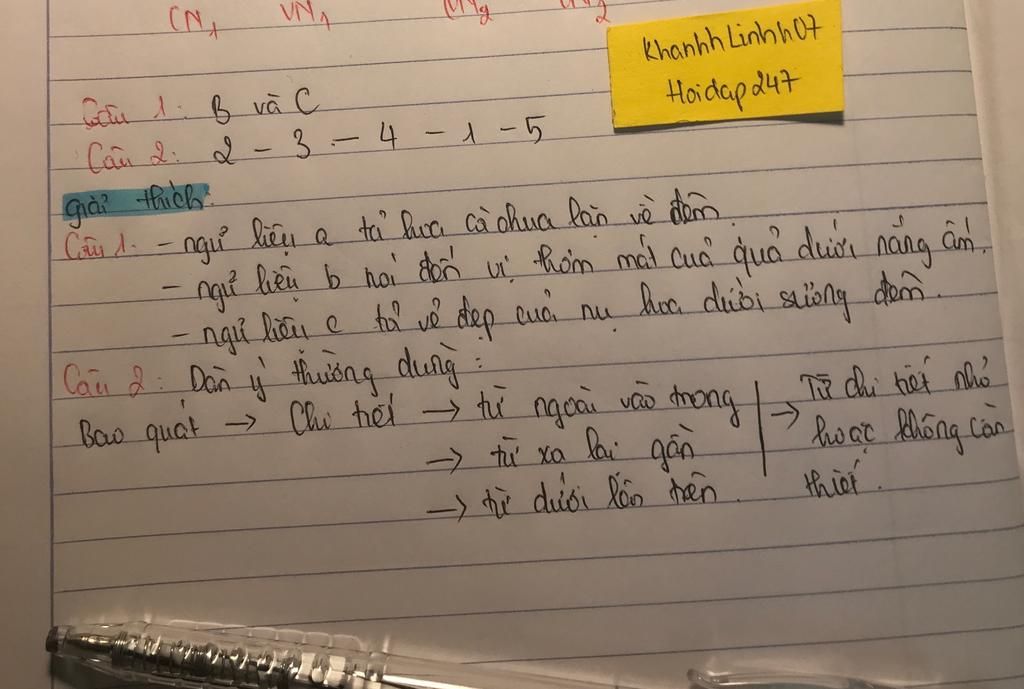 CN1 VN1 CN2 VN2
KhanhhLinhh07
Hoidap247
Câu 1: B và C
Câu 2: 2 - 3 - 4 - 1 - 5
giải thích:
Câu 1: - ngữ liệu a tả hoa cà chua lần về đêm.
- ngữ liệu b nói đến vị thơm mát của quả dưới nắng ấm.
- ngữ liệu c tả vẻ đẹp của nụ hoa dưới sương đêm.
Câu 2: Dàn ý thường dùng:
Bao quát → Chi tiết → từ ngoài vào trong
→ từ xa lại gần
→ từ dưới lên trên.
→ Từ chi tiết nhỏ
hoặc không cần
thiết.